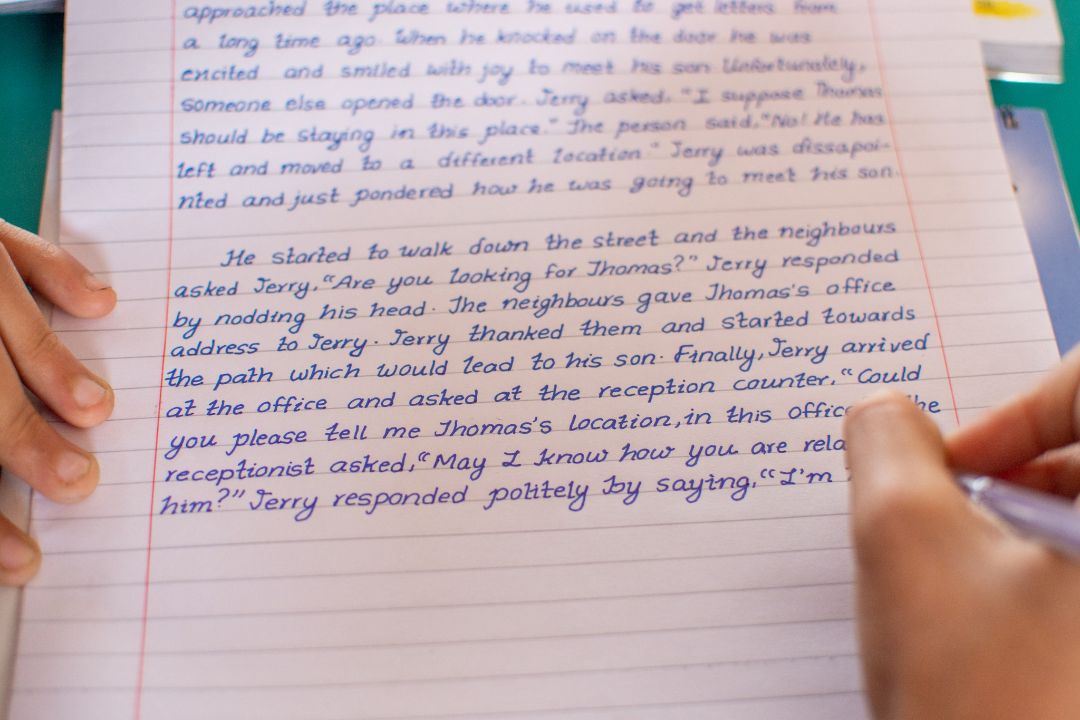 approached the place where he used to get letters from
a long time ago. When he knocked on the door he was
excited and smiled with joy to meet his son. Unfortunately,
someone else opened the door. Jerry asked, "I suppose Thomas
should be staying in this place." The person said, "No! He has
left and moved to a different location." Jerry was dissapoi-
nted and just pondered how he was going to meet his son.
He started to walk down the street and the neighbours
asked Jerry, "Are you looking for Thomas?" Jerry responded
by nodding his head. The neighbours gave Thomas's office
address to Jerry. Jerry thanked them and started towards
the path which would lead to his son. Finally, Jerry arrived
at the office and asked at the reception counter, "Could
you please tell me Thomas's location, in this office
receptionist asked, "May I know how you are
him?" Jerry responded politely by saying, "I'm